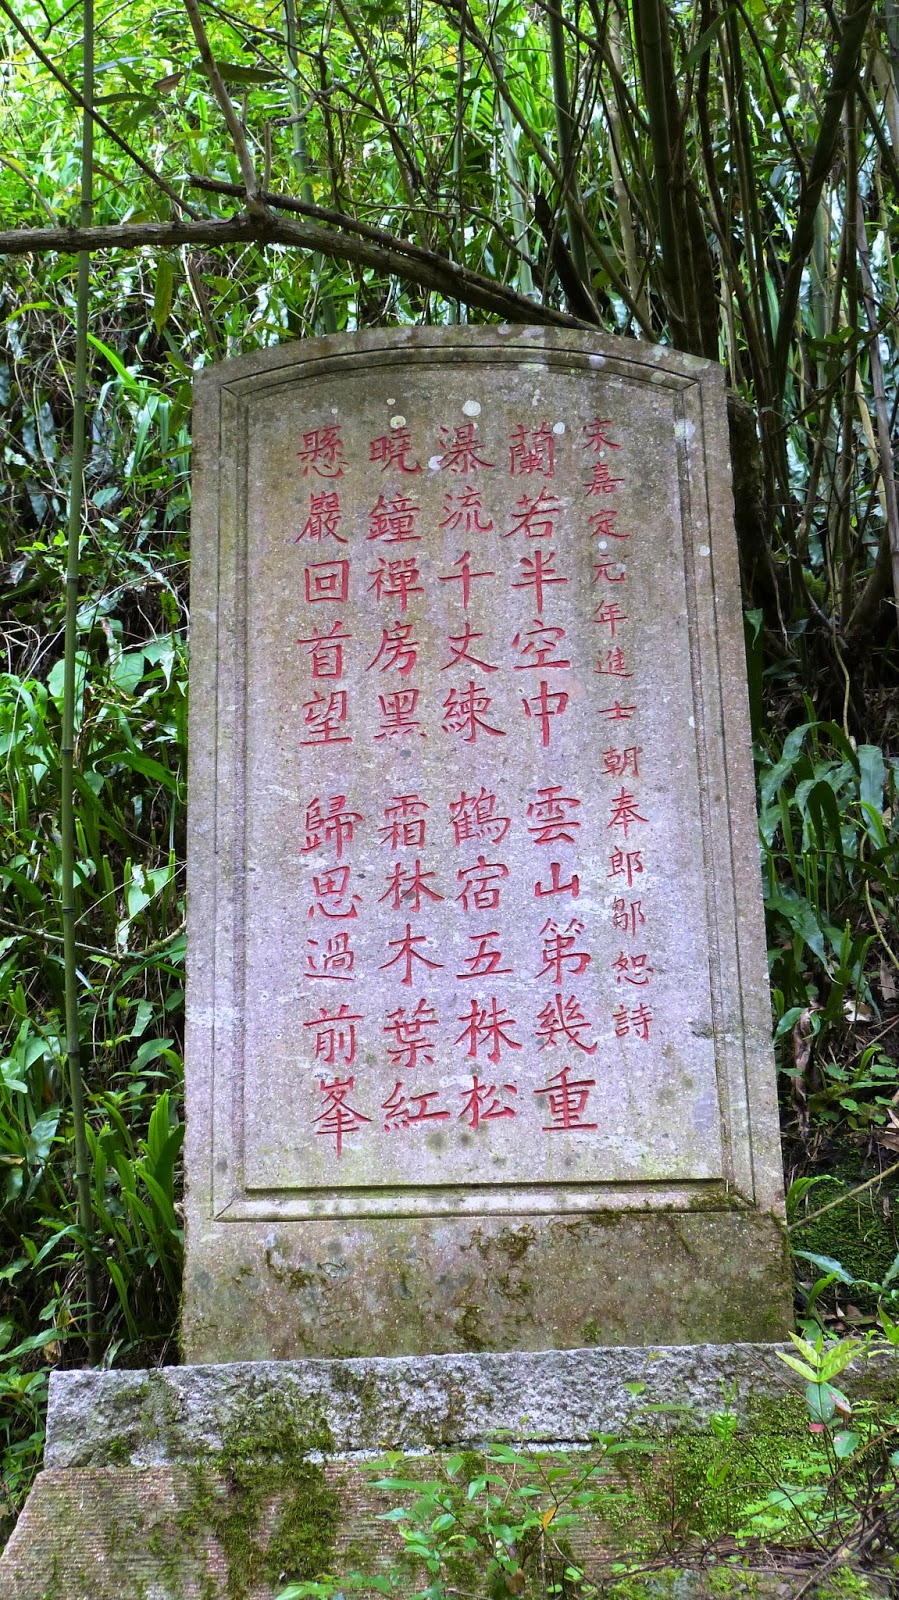 宋嘉定元年進士朝奉郎鄒恕詩
蘭若半空中 雲山第幾重
瀑流千丈練 鶴宿五株松
曉鐘禪房黑 霜林木葉紅
懸巖回首望 歸思過前峯